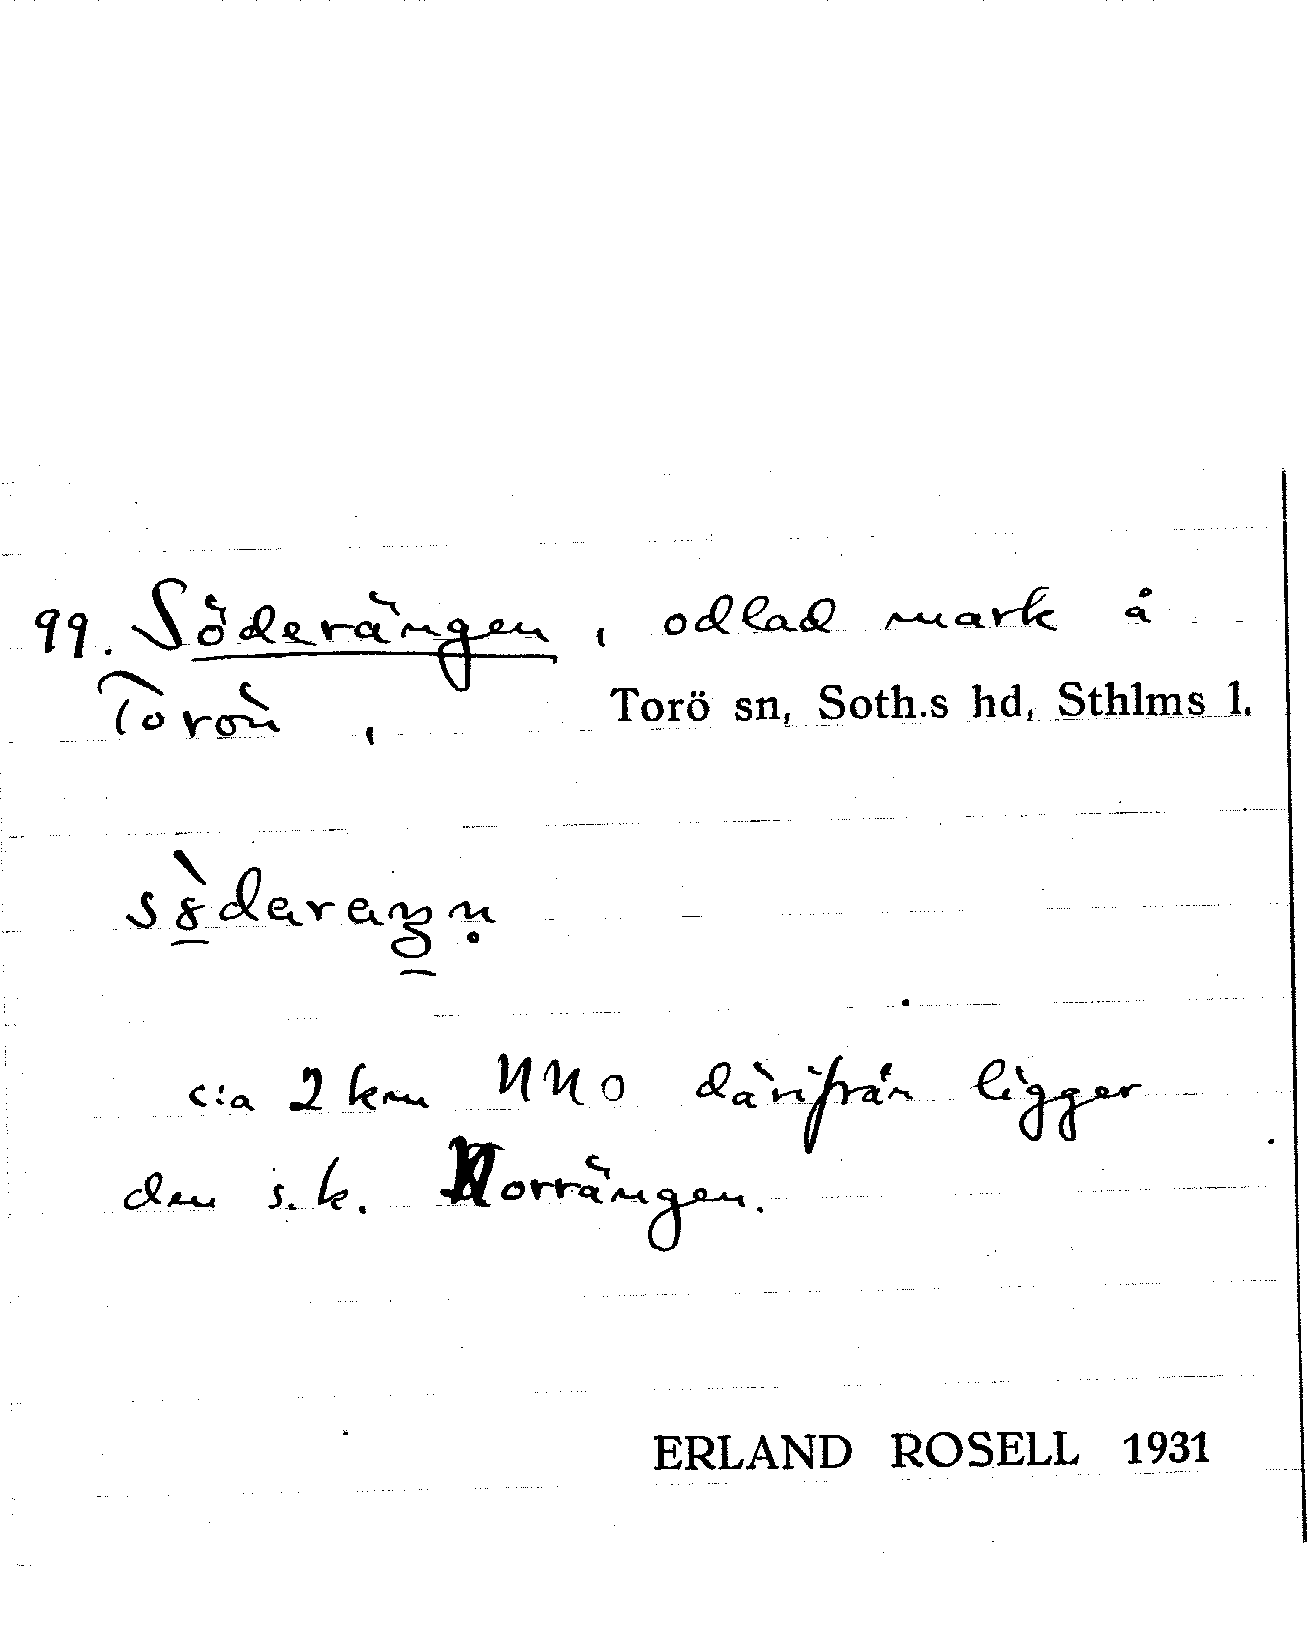 99. Söderängen, odlad mark å
Torön, Torö sn, Soth.s hd, Sthlms l.
c:a 2 km NNO därifrån ligger
den s.k. Norrängen.
ERLAND ROSELL 1931